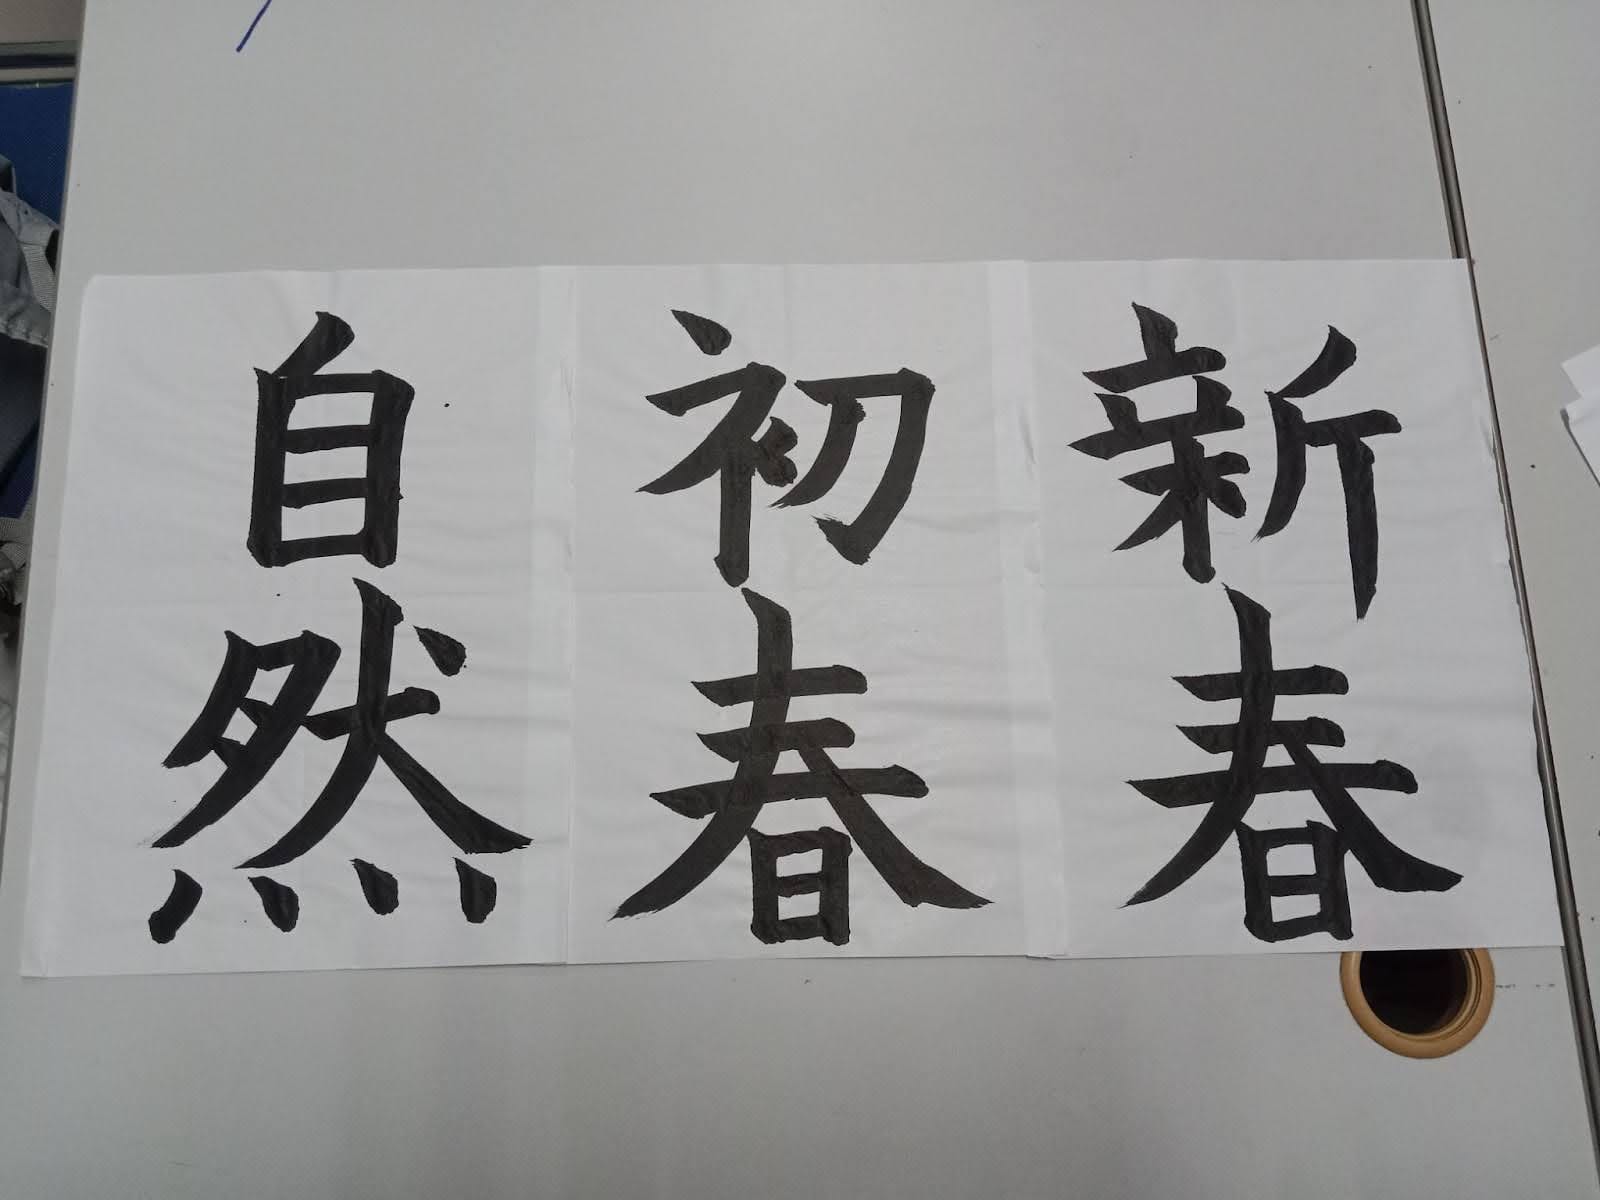 新春
初春
自然